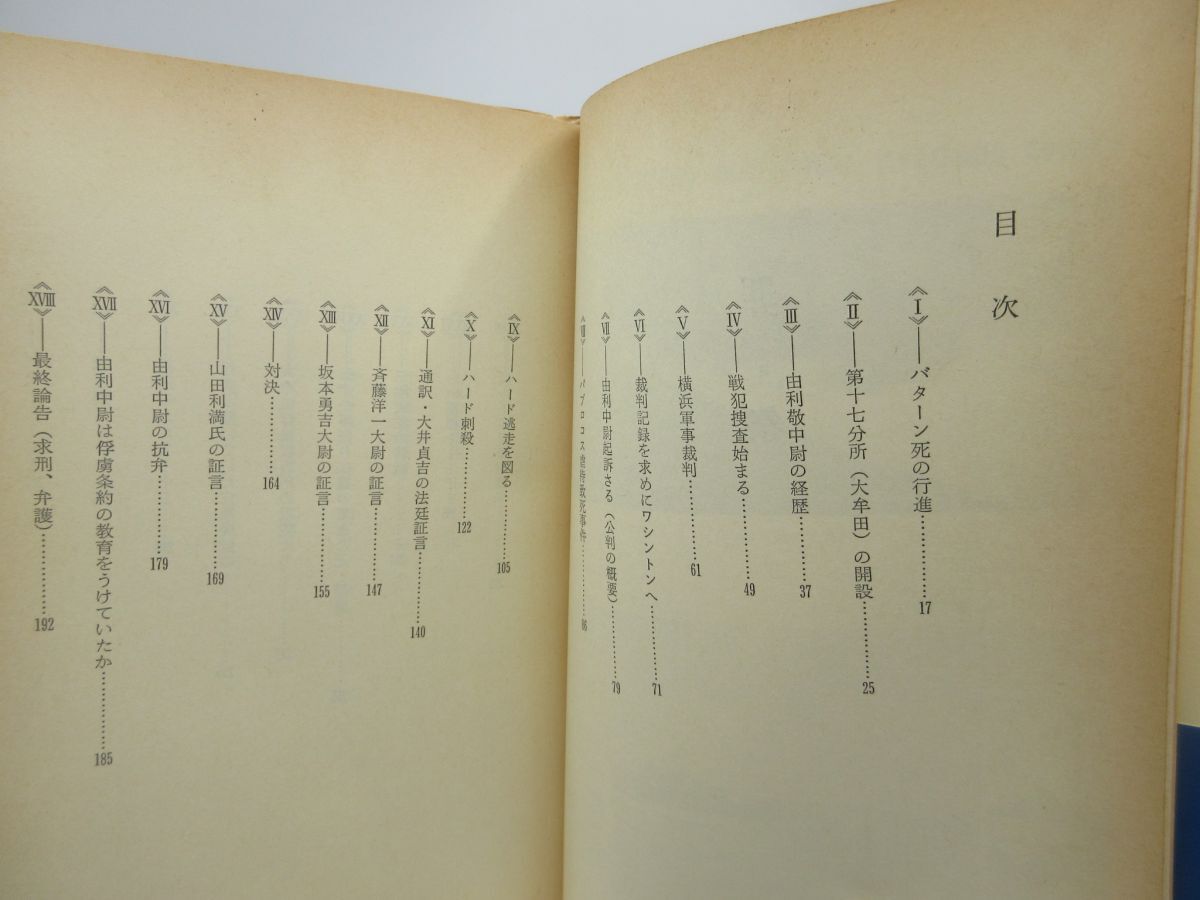 目次
《Ⅰ》――バターン死の行進…………17
《Ⅱ》――第十七分所（大牟田）の開設…………25
《Ⅲ》――由利敬中尉の経歴…………37
《Ⅳ》――戦犯捜査始まる…………49
《Ⅴ》――横浜軍事裁判…………61
《Ⅵ》――裁判記録を求めにワシントンへ…………71
《Ⅶ》――由利中尉起訴さる（公判の概要）…………79
《Ⅷ》――パブロコス虐待致死事件…………86
《Ⅸ》――ハード逃走を図る…………105
《Ⅹ》――ハード刺殺…………122
《Ⅺ》――通訳・大井貞吉の法廷証言…………140
《Ⅻ》――斉藤洋一大尉の証言…………147
《XIII》――坂本勇吉大尉の証言…………155
《XIV》――対決…………164
《XV》――山田利満氏の証言…………169
《XVI》――由利中尉の抗弁…………179
《XVII》――由利中尉は俘虜条約の教育をうけていたか…………185
《XVIII》――最終論告（求刑、弁護）…………192